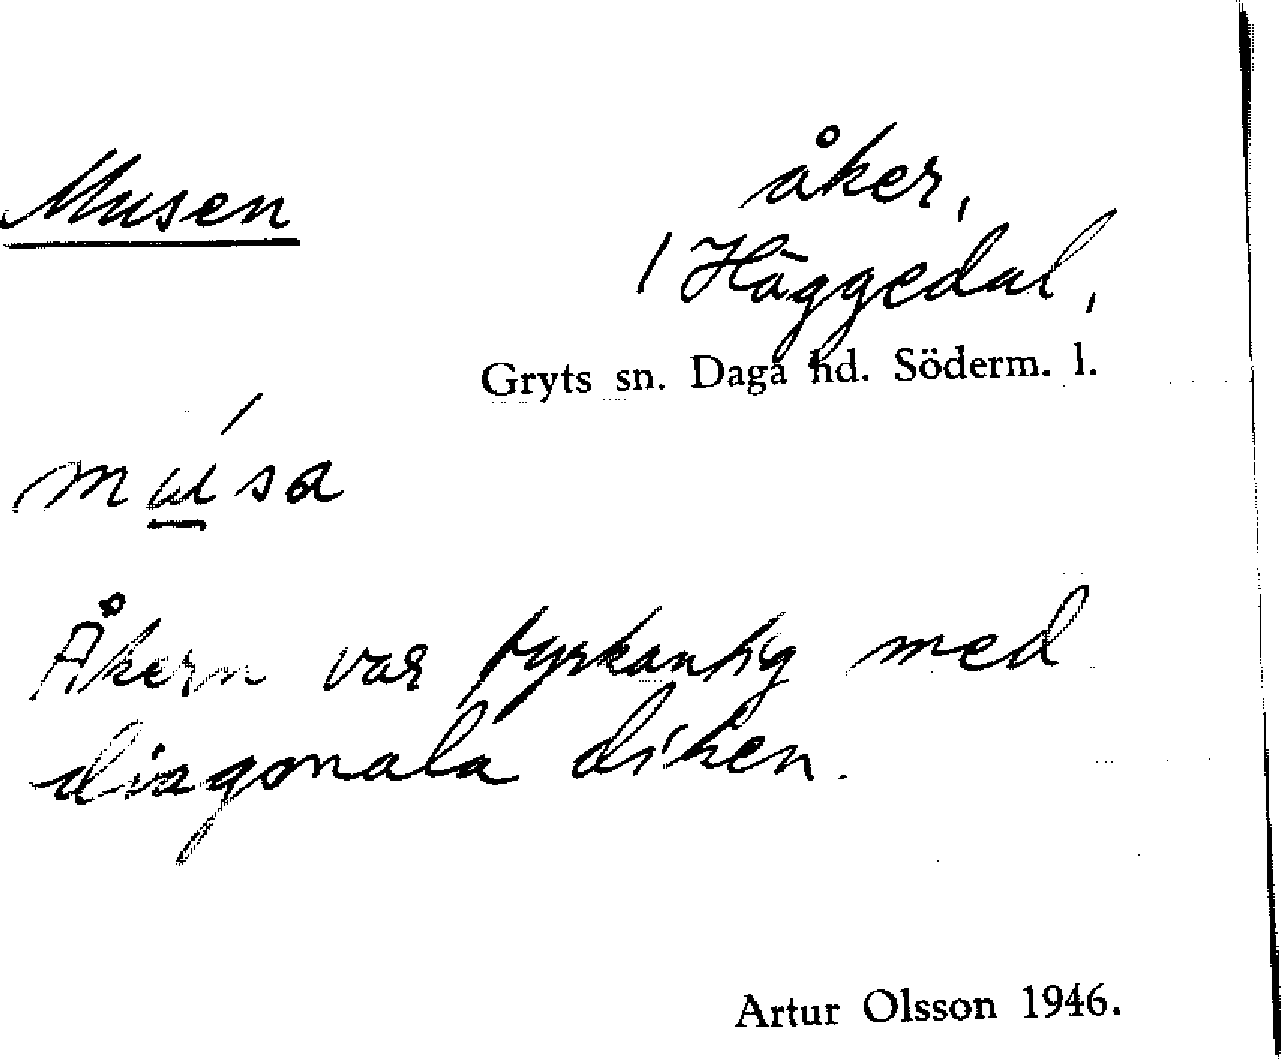 Musen
åker,
1 Häggedal,
Gryts sn. Daga hd. Söderm. l.
músa
Åkern var fyrkantig med
diagonala diken.
Artur Olsson 1946.